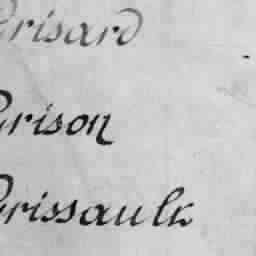 Grisard
Grison
Grissault